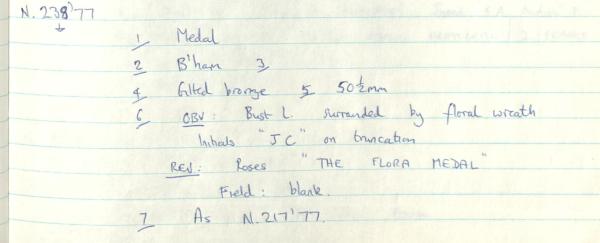 N. 238'77
1 Medal
2 B'ham 3
4 Gilted bronze 5 50½mm
6 OBV: Bust L. surrounded by floral wreath
Initials "J C" on truncation
REV: Roses "THE FLORA MEDAL"
Field: blank.
7 As N.217'77.